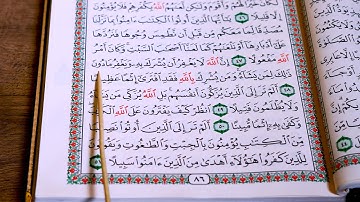 كَانَ خَيْرًا لَّهُمْ وَأَقْوَمَ وَلَٰكِن لَّعَنَهُمُ ٱللَّهُ بِكُفْرِهِمْ فَلَا يُؤْمِنُونَ
إِلَّا قَلِيلًا ٤٦ يَٰٓأَيُّهَا ٱلَّذِينَ أُوتُوا۟ ٱلْكِتَٰبَ ءَامِنُوا۟ بِمَا نَزَّلْنَا
مُصَدِّقًا لِّمَا مَعَكُم مِّن قَبْلِ أَن نَّطْمِسَ وُجُوهًا فَنَرُدَّهَا
عَلَىٰٓ أَدْبَارِهَآ أَوْ نَلْعَنَهُمْ كَمَا لَعَنَّآ أَصْحَٰبَ ٱلسَّبْتِ وَكَانَ أَمْرُ
ٱللَّهِ مَفْعُولًا ٤٧ إِنَّ ٱللَّهَ لَا يَغْفِرُ أَن يُشْرَكَ بِهِۦ وَيَغْفِرُ مَا دُونَ
ذَٰلِكَ لِمَن يَشَآءُ وَمَن يُشْرِكْ بِٱللَّهِ فَقَدِ ٱفْتَرَىٰٓ إِثْمًا عَظِيمًا
٤٨ أَلَمْ تَرَ إِلَى ٱلَّذِينَ يُزَكُّونَ أَنفُسَهُم بَلِ ٱللَّهُ يُزَكِّى مَن يَشَآءُ
وَلَا يُظْلَمُونَ فَتِيلًا ٤٩ ٱنظُرْ كَيْفَ يَفْتَرُونَ عَلَى ٱللَّهِ ٱلْكَذِبَ
وَكَفَىٰ بِهِۦٓ إِثْمًا مُّبِينًا ٥٠ أَلَمْ تَرَ إِلَى ٱلَّذِينَ أُوتُوا۟ نَصِيبًا
مِّنَ ٱلْكِتَٰبِ يُؤْمِنُونَ بِٱلْجِبْتِ وَٱلطَّٰغُوتِ وَيَقُولُونَ
لِلَّذِينَ كَفَرُوا۟ هَٰٓؤُلَآءِ أَهْدَىٰ مِنَ ٱلَّذِينَ ءَامَنُوا۟ سَبِيلًا ٥١
٨٦